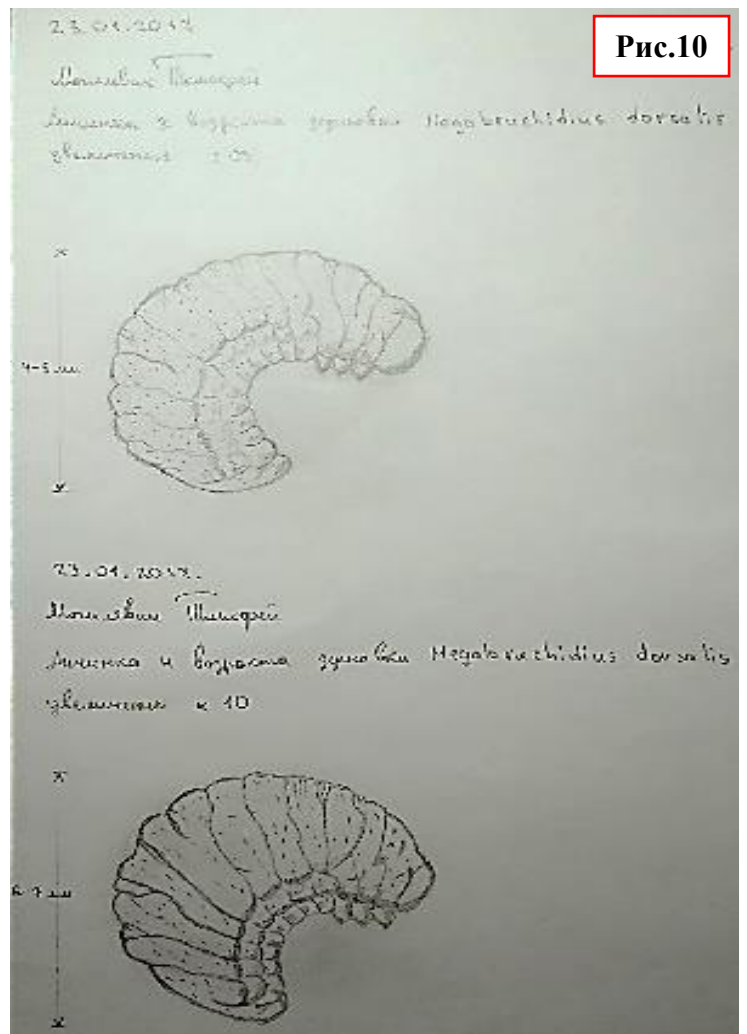 Рис.10
23.01.2017
Тимофей
Личинка возраста зерновки Megabruchidius dorsalis
увеличение
4-5 мм
23.01.2017.
Тимофей
Личинка 4 возраста зерновки Megabruchidius dorsalis
увеличение x 10
6-7 мм